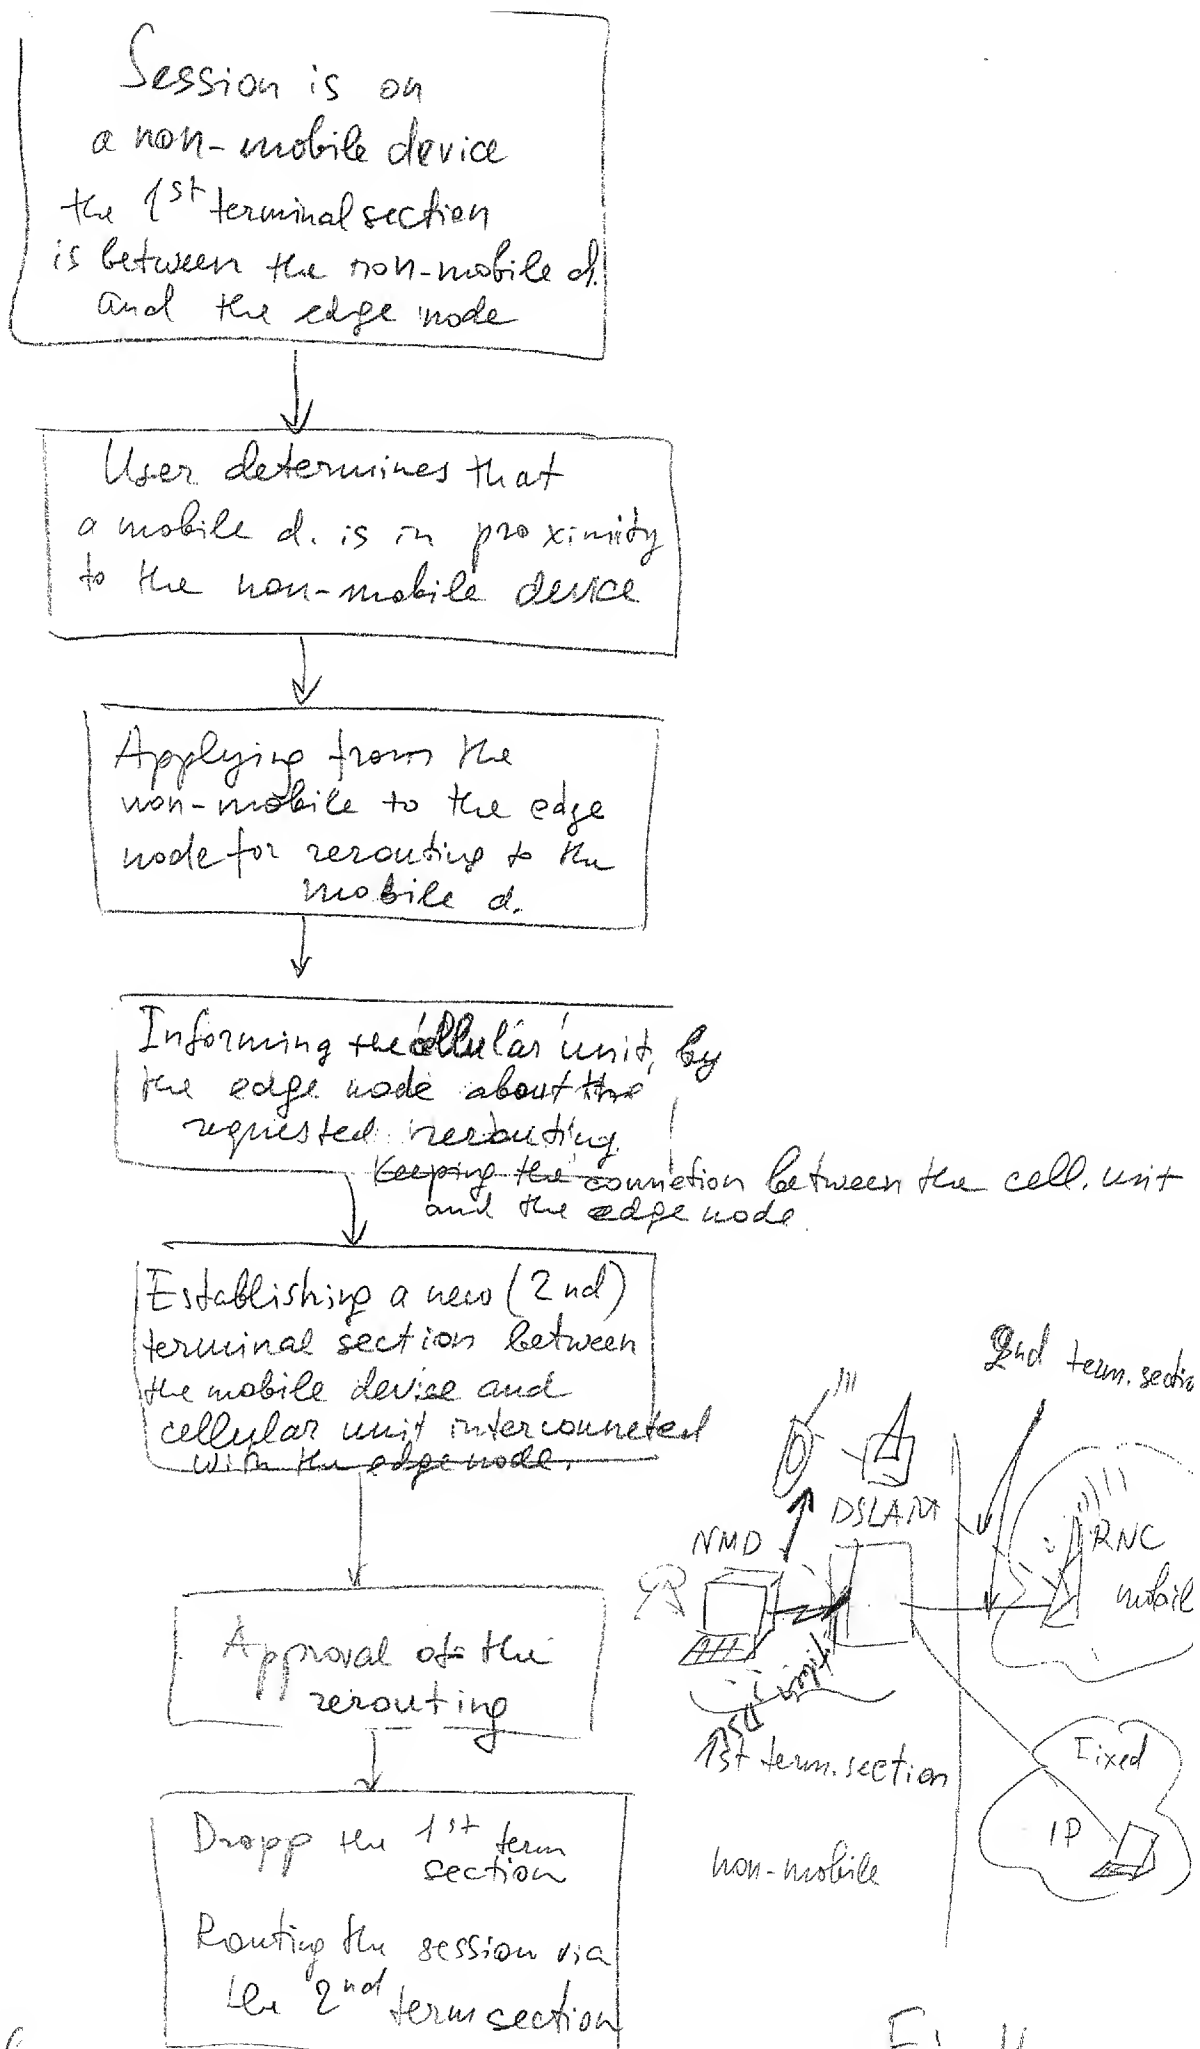 Session is on
a non-mobile device
the 1st terminal section
is between the non-mobile d.
and the edge node
User determines that
a mobile d. is in proximity
to the non-mobile device
Applying from the
non-mobile to the edge
node for rerouting to the
mobile d.
Informing the cellular unit, by
the edge node about the
requested rerouting.
Keeping the connetion between the cell. unit
and the edge node.
Establishing a new (2nd)
terminal section between
the mobile device and
cellular unit interconneted
with the edge node.
Approval of the
rerouting
Dropp the 1st term
section
Routing the session via
the 2nd term section
2nd term. section
DSLAM
NMD
RNC
mobil
1st term. section
non-mobile
Fixed
IP